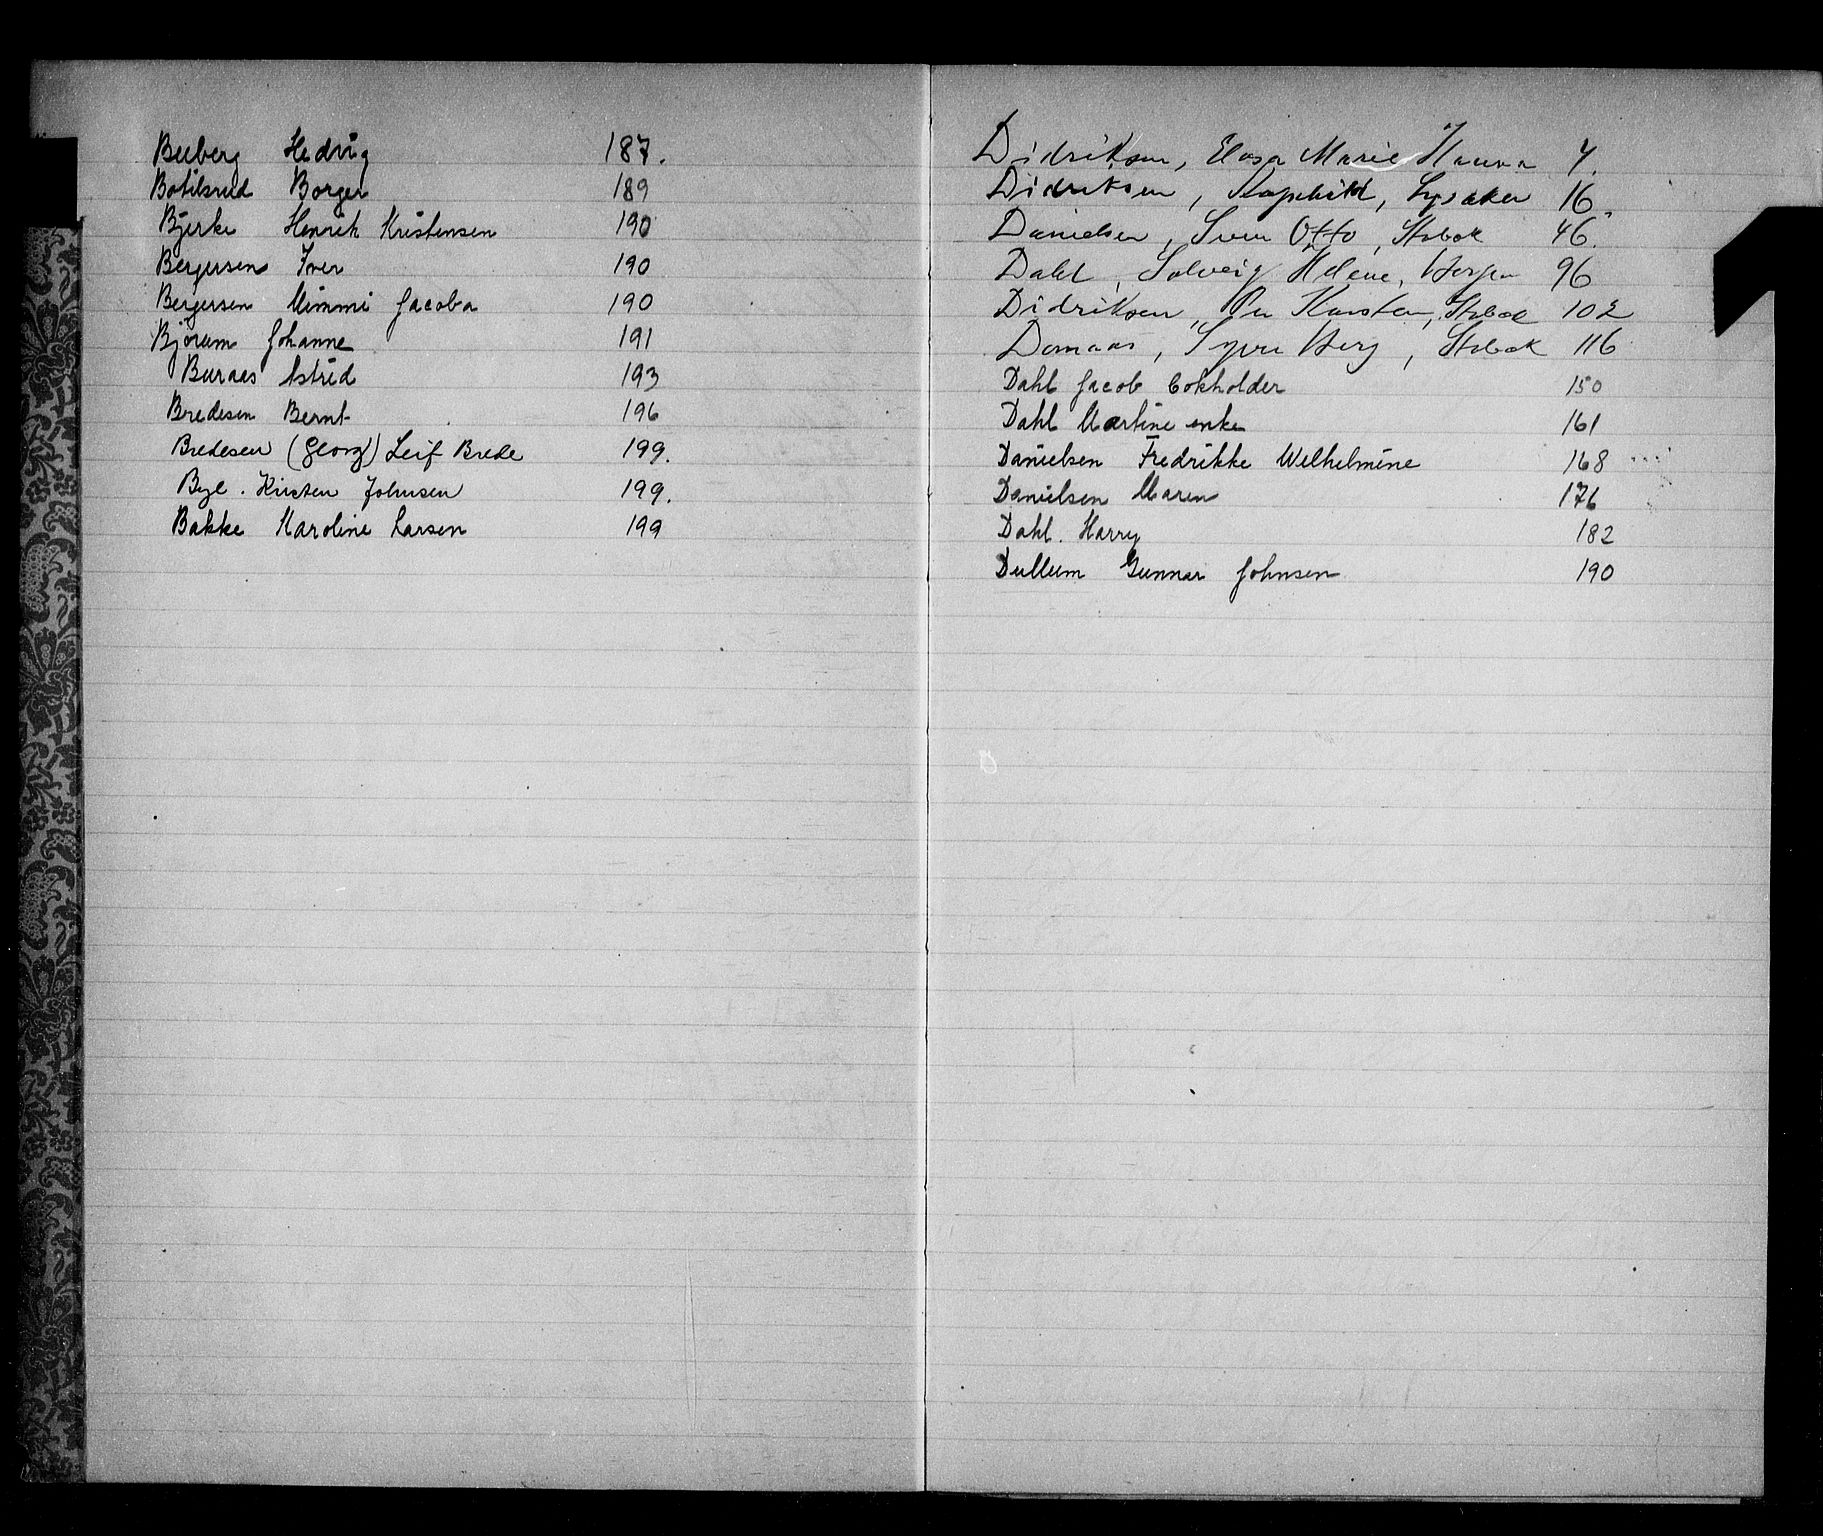 Buberg Hedvig 187.
Botilsrud Borger 189
Bjerke Henrik Kristensen 190
Bergersen Iver 190
Bergersen Mimmi Jacoba 190
Bjørum Johanne 191
Buraas Astrid 193
Bredesen Bernt 196
Bredesen (Georg) Leif Brede 199.
Bye. Kirsten Johnsen 199.
Bakke Karoline Larsen 199
Didriksen, Marie Hanna
Didriksen, Lysaker 16.
Danielsen, Sven Otto, Stabæk 46.
Dahl, Solveig Helene, 96
Didriksen, Per Karsten, Stabæk 102
Berg, Stabæk 116
Dahl Jacob Cokholder 150
Dahl Martine enke 161
Danielsen Fredrikke Wilhelmine 168
Danielsen Maren 176
Dahl. Harry 182
Dullum Gunnar Johnsen 190